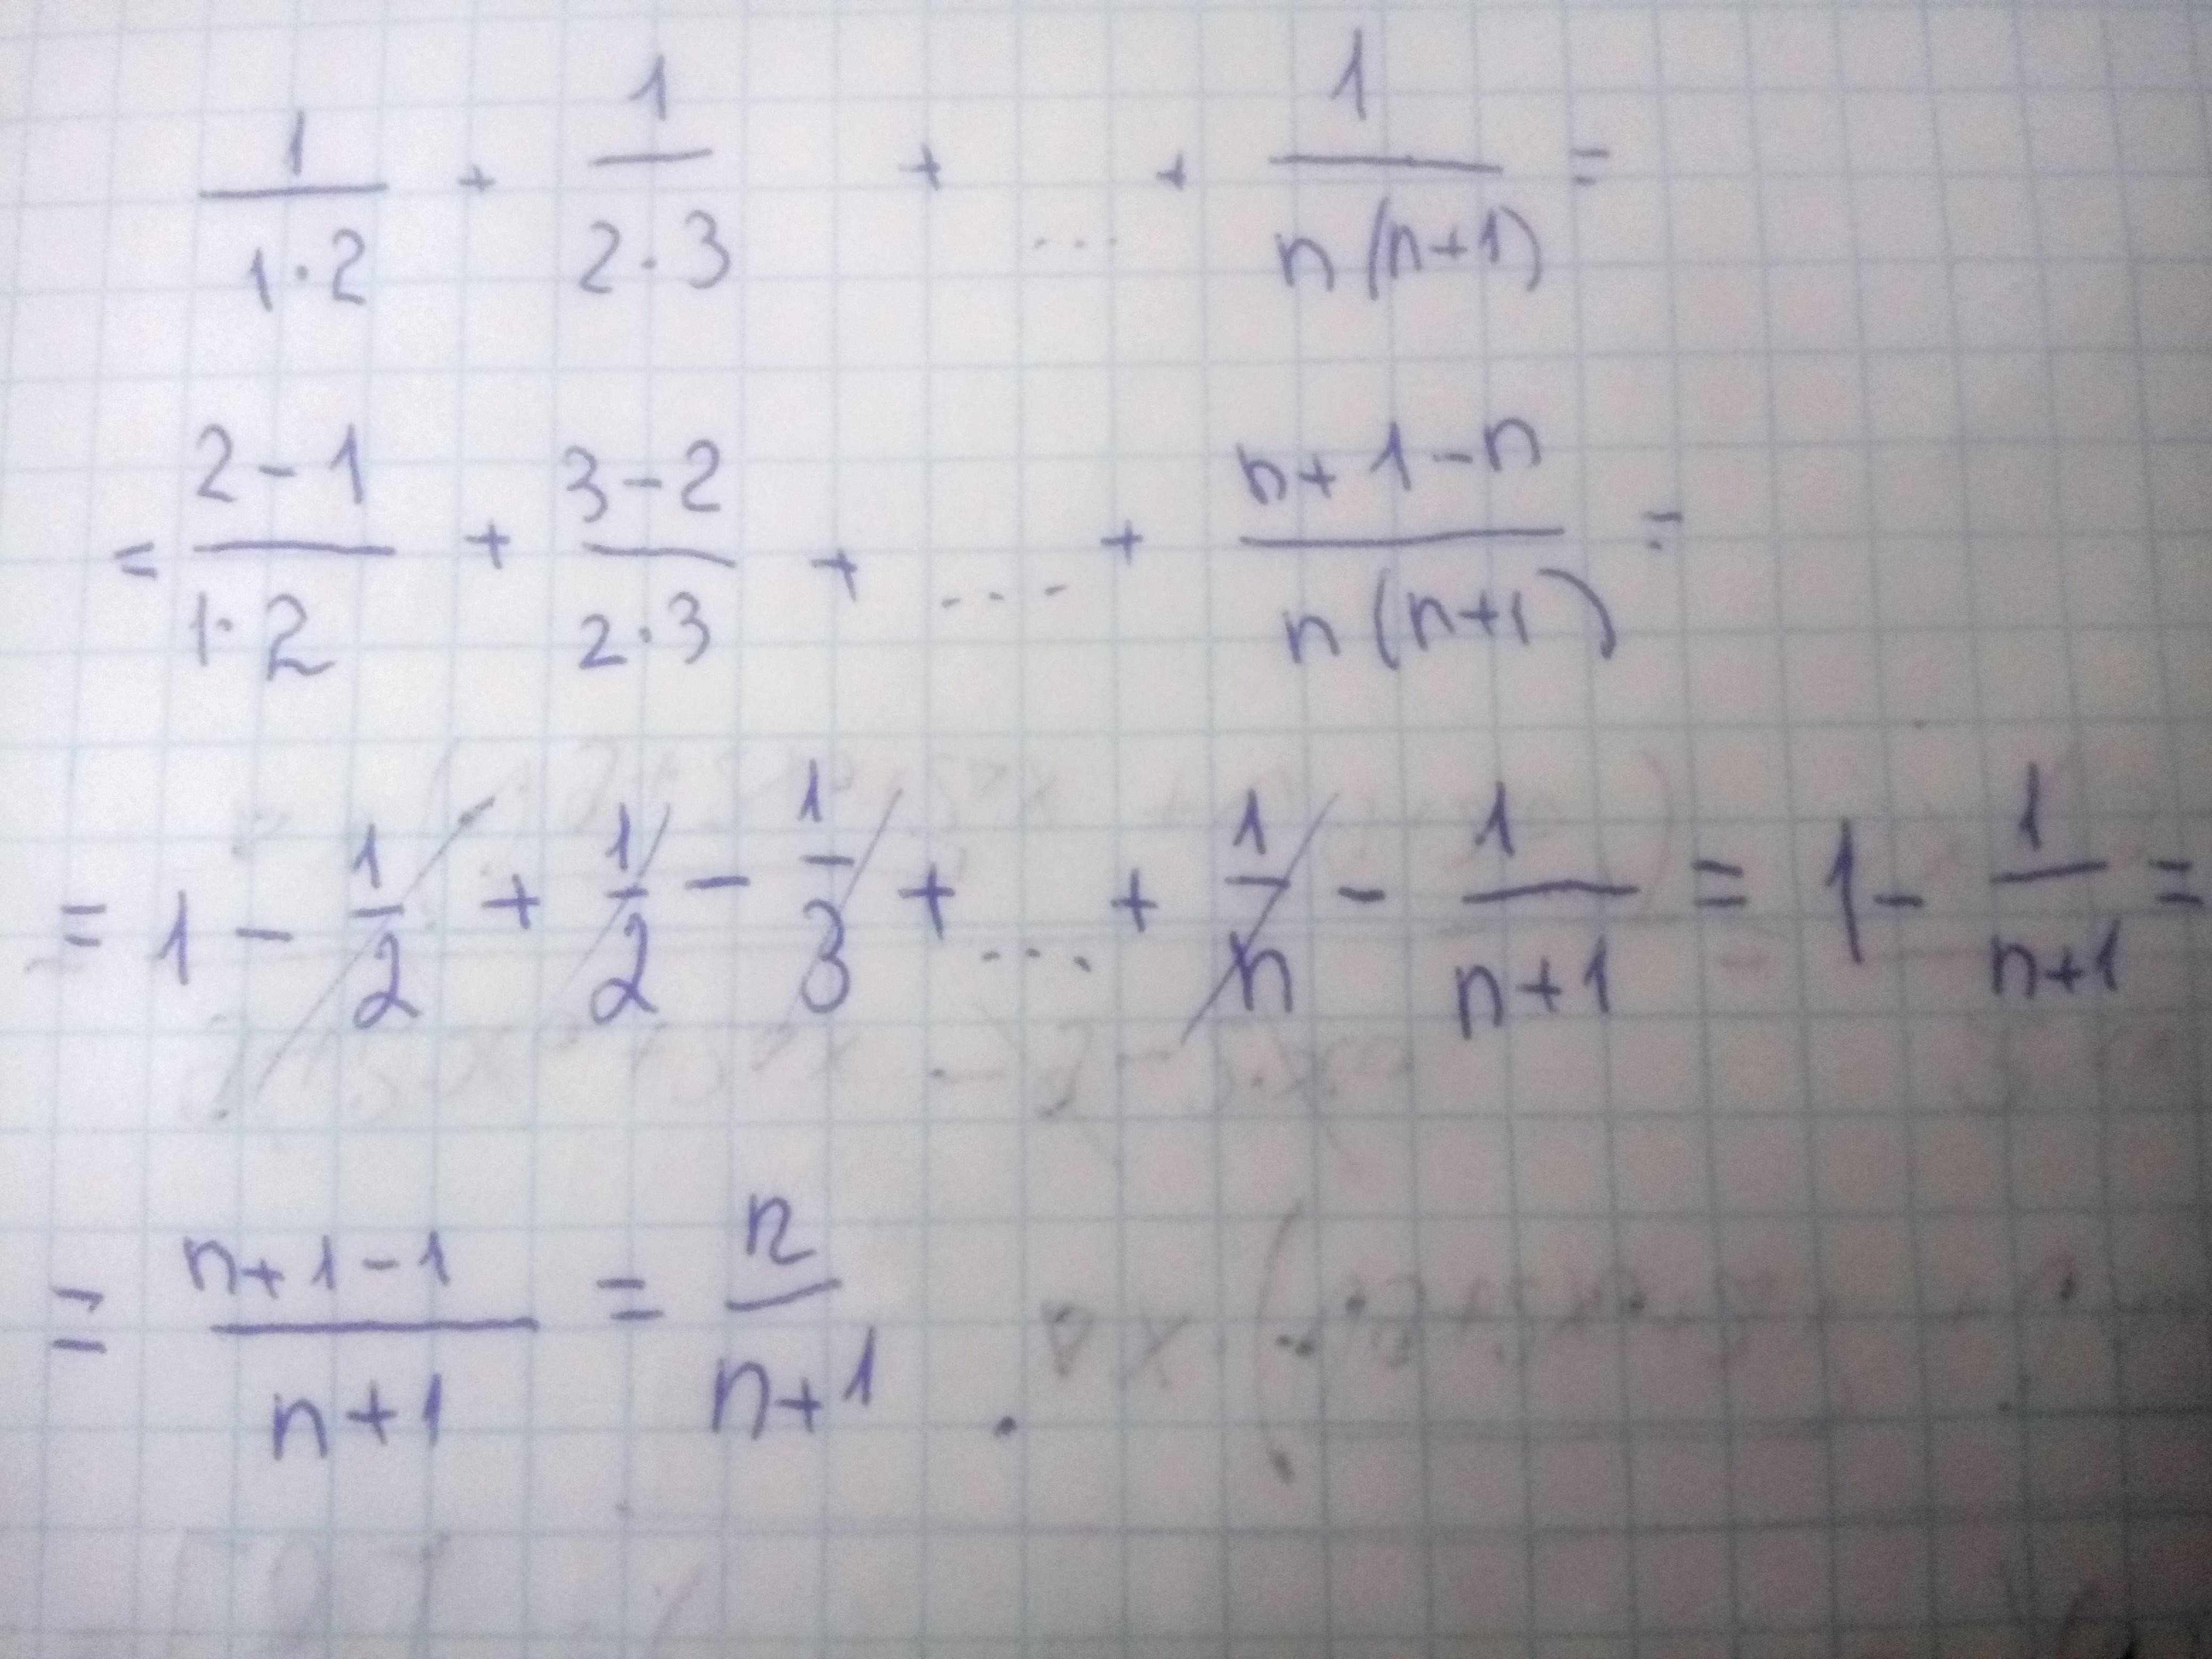 1/(1·2) + 1/(2·3) + ... + 1/(n(n+1)) =
= (2-1)/(1·2) + (3-2)/(2·3) + ... + (n+1-n)/(n(n+1)) =
= 1 - 1/2 + 1/2 - 1/3 + ... + 1/n - 1/(n+1) = 1 - 1/(n+1) =
= (n+1-1)/(n+1) = n/(n+1) .